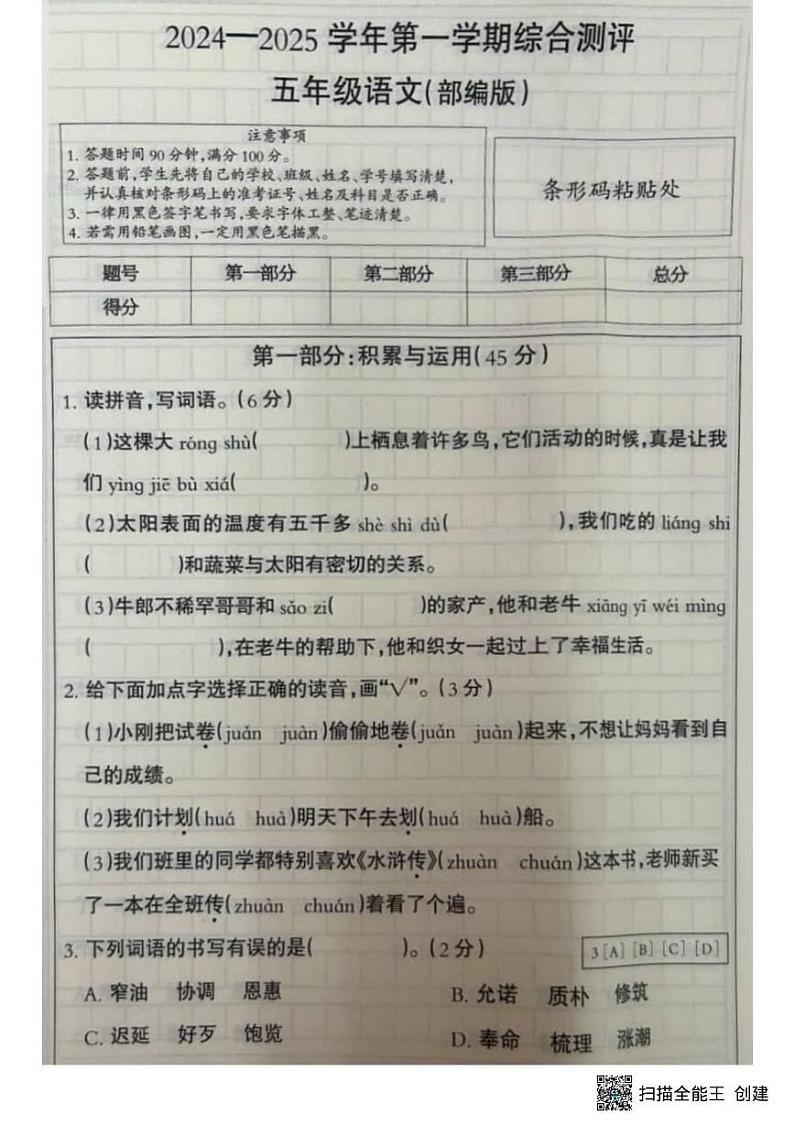 2024—2025学年第一学期综合测评
五年级语文(部编版)
注意事项
1. 答题时间90分钟,满分100分。
2. 答题前,学生先将自己的学校、班级、姓名、学号填写清楚,
并认真核对条形码上的准考证号、姓名及科目是否正确。
3. 一律用黑色签字笔书写,要求字体工整、笔迹清楚。
4. 若需用铅笔画图,一定用黑色笔描黑。
条形码粘贴处
题号 第一部分 第二部分 第三部分 总分
得分
第一部分:积累与运用(45分)
1. 读拼音,写词语。(6分)
(1)这棵大 róng shù( )上栖息着许多鸟,它们活动的时候,真是让我
们 yìng jiē bù xiá( )。
(2)太阳表面的温度有五千多 shè shì dù( ),我们吃的 liáng shi
( )和蔬菜与太阳有密切的关系。
(3)牛郎不稀罕哥哥和 sǎo zi( )的家产,他和老牛 xiāng yī wéi mìng
( ),在老牛的帮助下,他和织女一起过上了幸福生活。
2. 给下面加点字选择正确的读音,画“√”。(3分)
(1)小刚把试卷(juǎn juàn)偷偷地卷(juǎn juàn)起来,不想让妈妈看到自
己的成绩。
(2)我们计划(huá huà)明天下午去划(huá huà)船。
(3)我们班里的同学都特别喜欢《水浒传》(zhuàn chuán)这本书,老师新买
了一本在全班传(zhuàn chuán)着看了个遍。
3. 下列词语的书写有误的是( )。(2分) 3 [A] [B] [C] [D]
A. 窄油 协调 恩惠 B. 允诺 质朴 修筑
C. 迟延 好歹 饱览 D. 奉命 梳理 涨潮
扫描全能王 创建